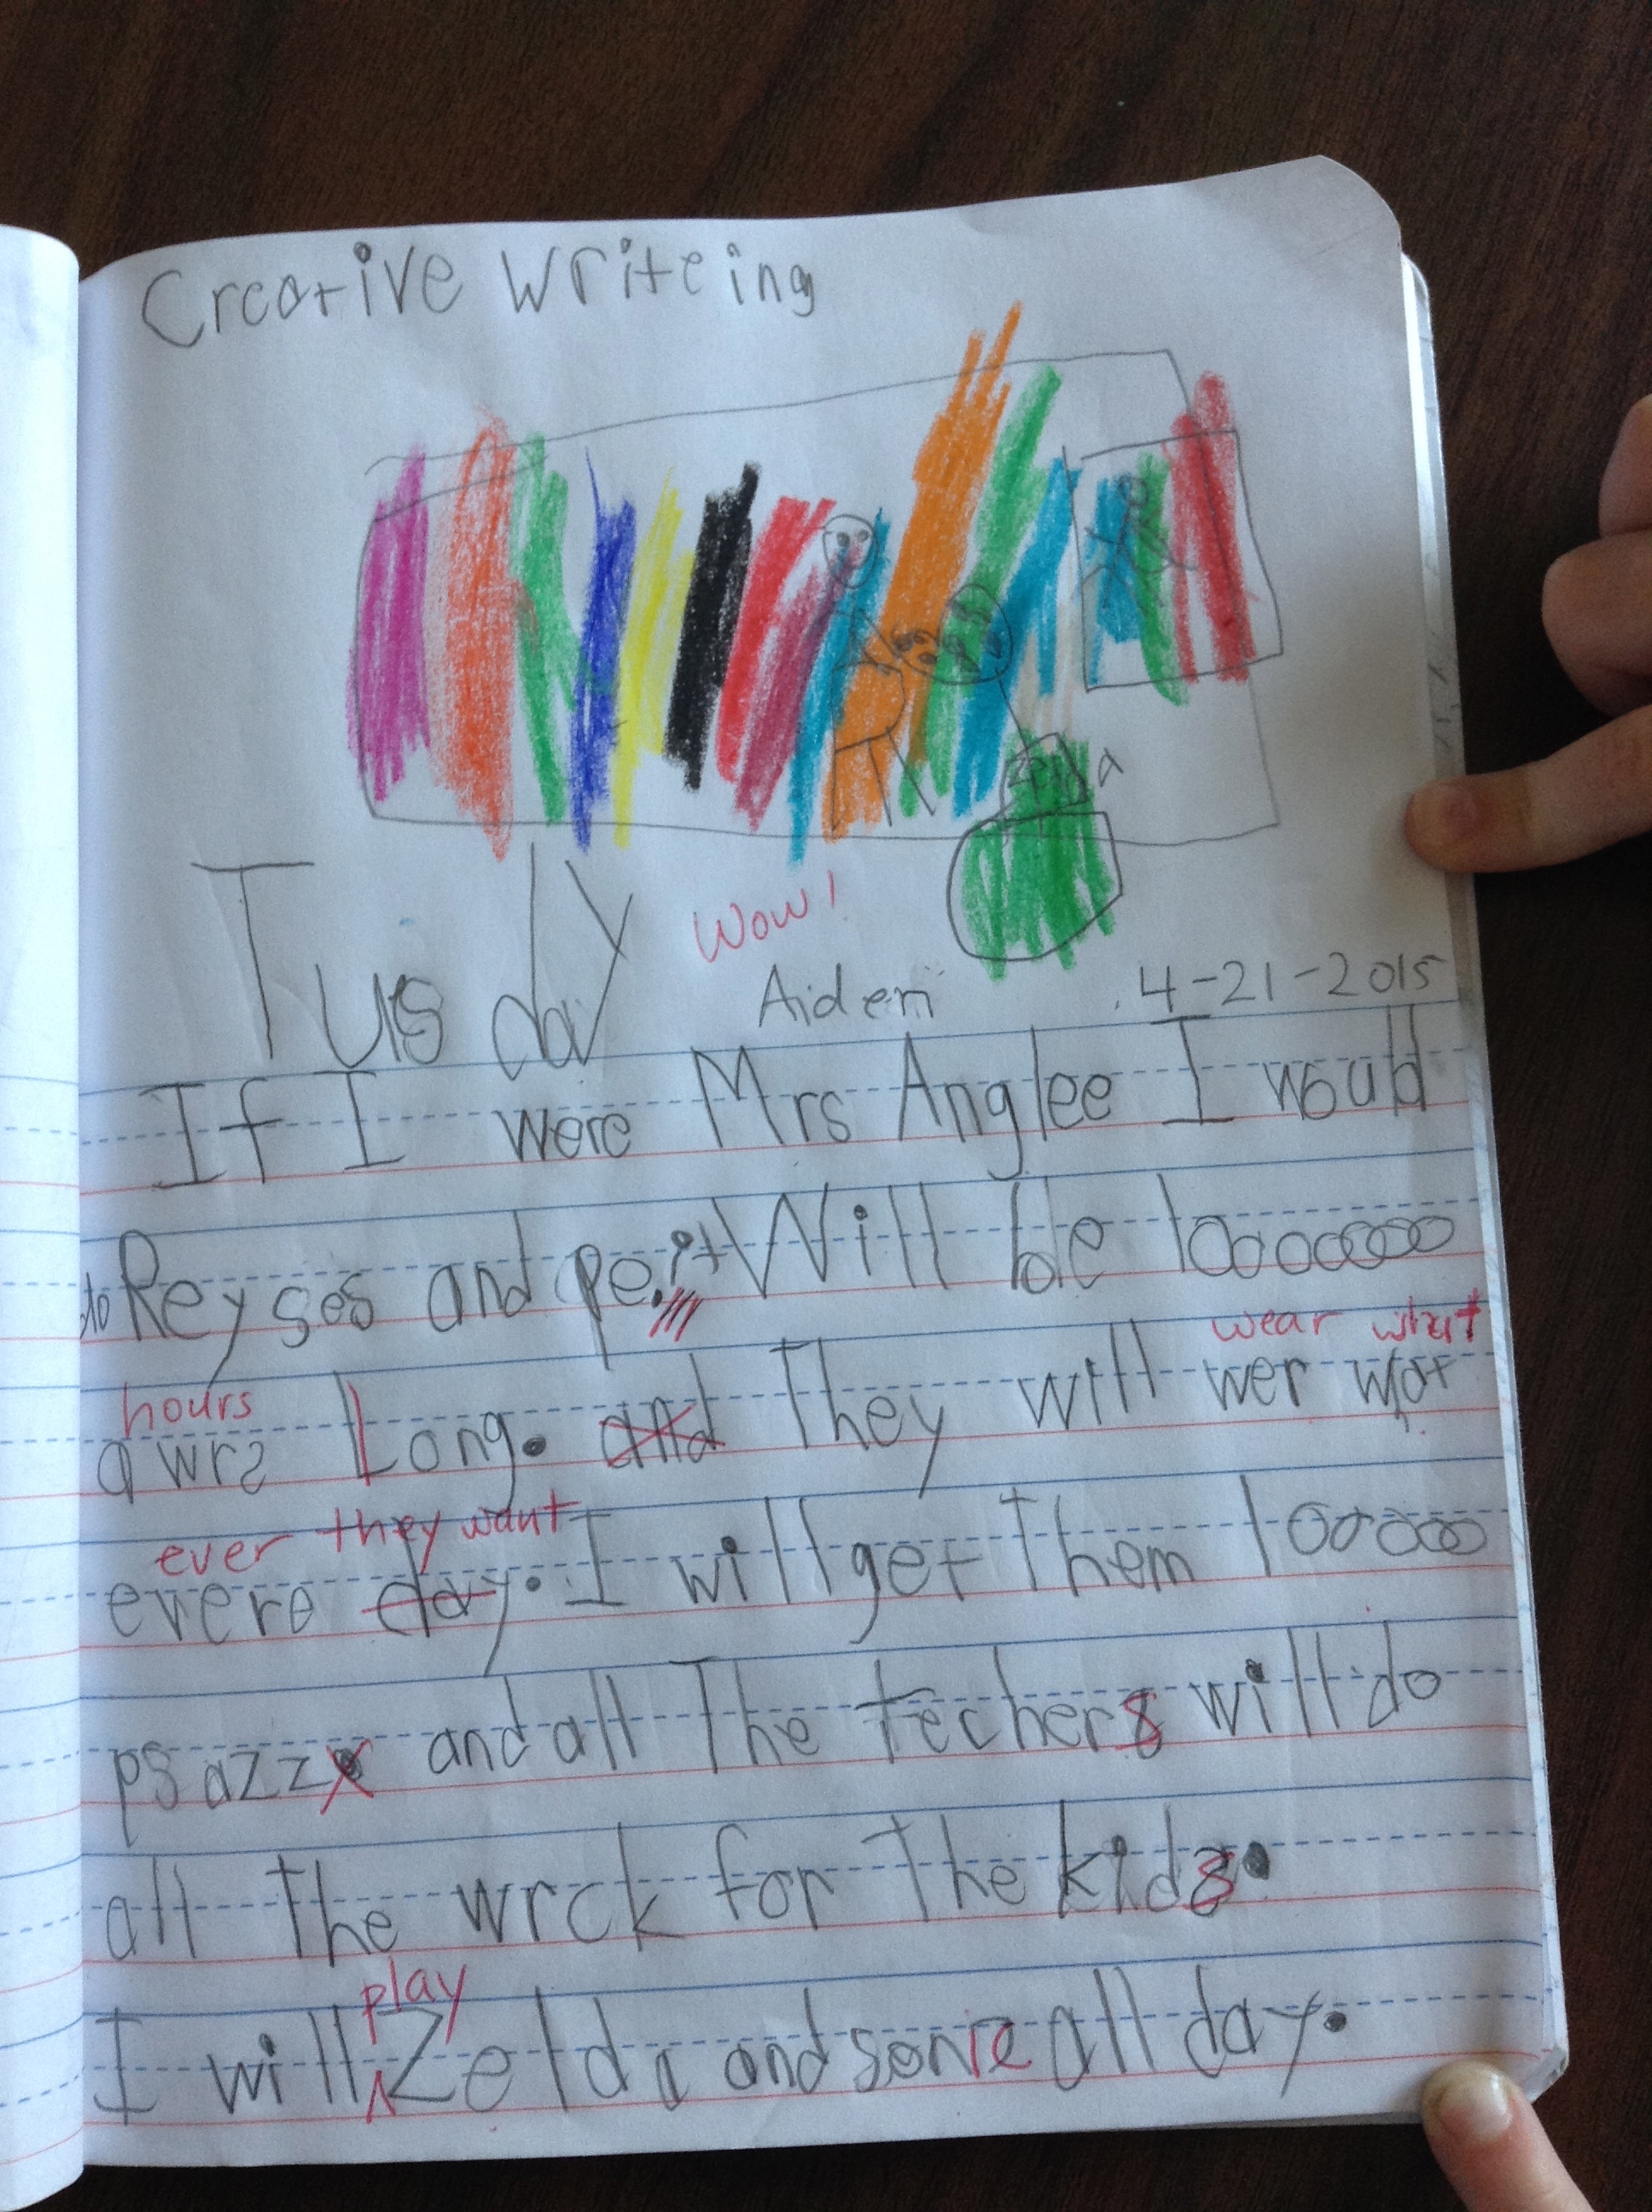 Creative Writeing
Zelda
Tuesday
Wow!
Aiden 4-21-2015
If I were Mrs Anglee I would
do Reyses and pe. it Will be 10000000
hours wear what
awrs Long. and They will wer wat
ever they want
evere day. I will get Them 100000
psazz and all The techers will do
all The wrck for The kids.
play
I will Zelda and sonic all day.